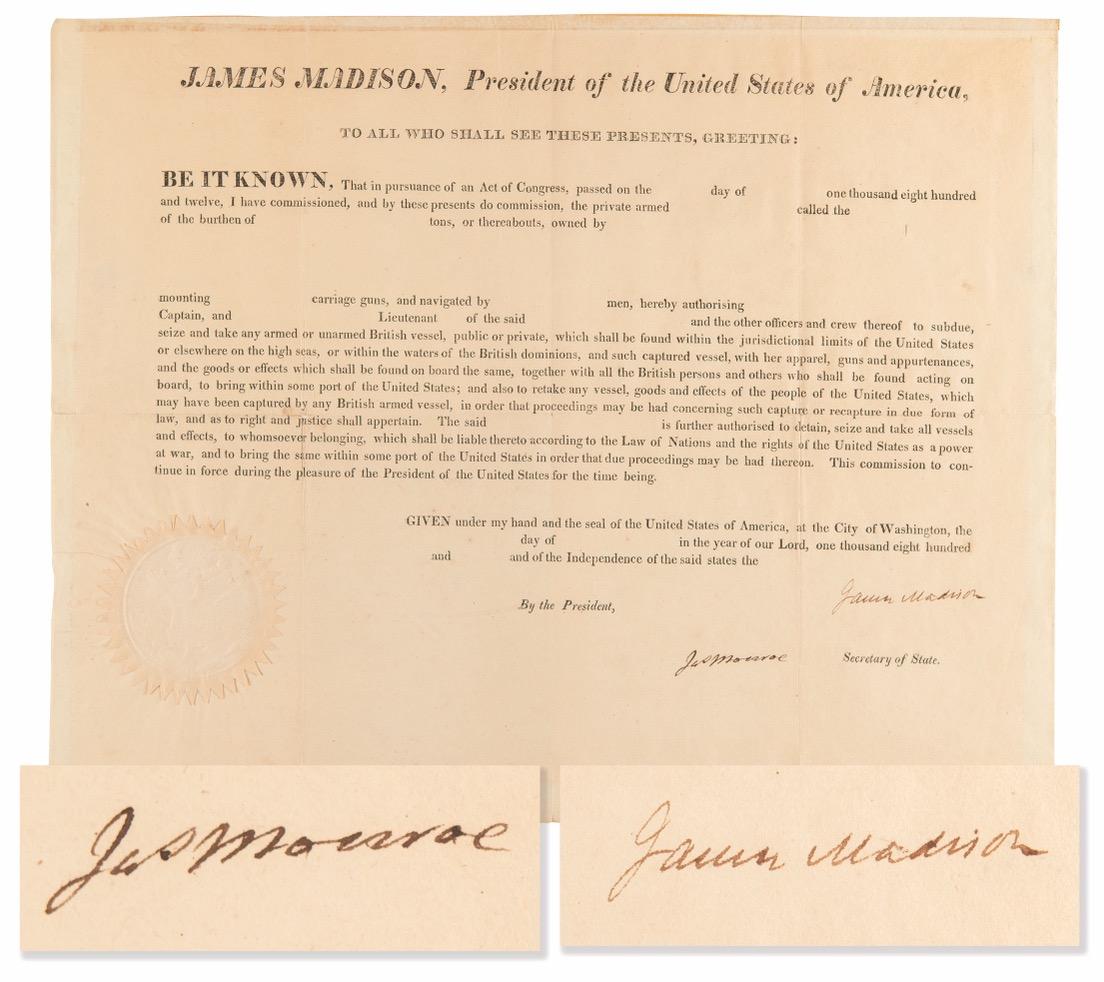 JAMES MADISON, President of the United States of America,
TO ALL WHO SHALL SEE THESE PRESENTS, GREETING:
BE IT KNOWN, That in pursuance of an Act of Congress, passed on the day of one thousand eight hundred
and twelve, I have commissioned, and by these presents do commission, the private armed called the
of the burthen of tons, or thereabouts, owned by
mounting carriage guns, and navigated by men, hereby authorising
Captain, and Lieutenant of the said and the other officers and crew thereof to subdue,
seize and take any armed or unarmed British vessel, public or private, which shall be found within the jurisdictional limits of the United States
or elsewhere on the high seas, or within the waters of the British dominions, and such captured vessel, with her apparel, guns and appurtenances,
and the goods or effects which shall be found on board the same, together with all the British persons and others who shall be found acting on
board, to bring within some port of the United States; and also to retake any vessel, goods and effects of the people of the United States, which
may have been captured by any British armed vessel, in order that proceedings may be had concerning such capture or recapture in due form of
law, and as to right and justice shall appertain. The said is further authorised to detain, seize and take all vessels
and effects, to whomsoever belonging, which shall be liable thereto according to the Law of Nations and the rights of the United States as a power
at war, and to bring the same within some port of the United States in order that due proceedings may be had thereon. This commission to con-
tinue in force during the pleasure of the President of the United States for the time being.
GIVEN under my hand and the seal of the United States of America, at the City of Washington, the
day of in the year of our Lord, one thousand eight hundred
and and of the Independence of the said states the
James Madison
By the President,
Jas Monroe Secretary of State.
Jas Monroe
James Madison